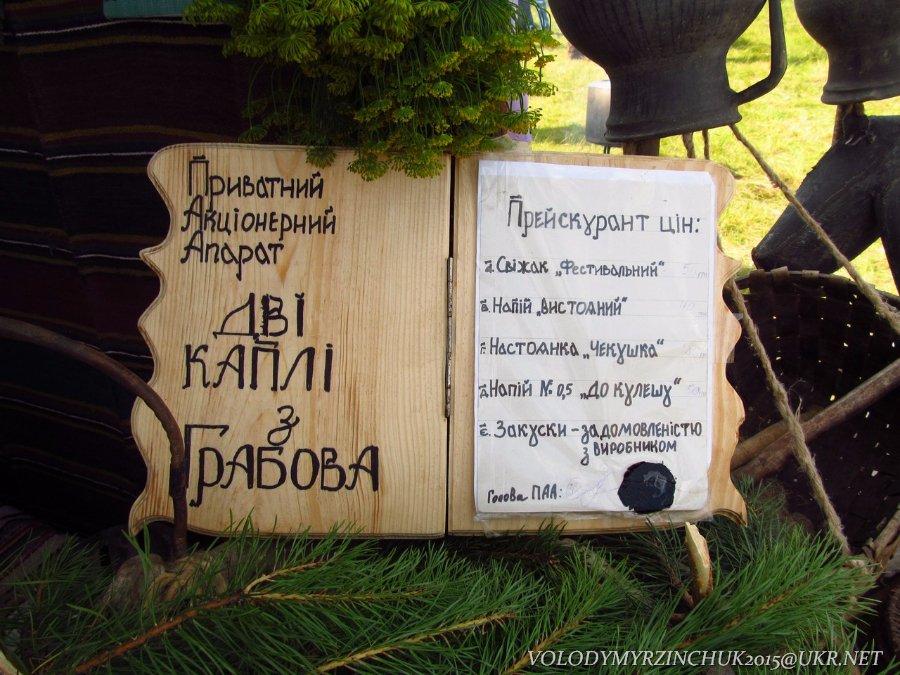 Приватний
Акціонерний
Апарат
ДВІ
КАПЛІ
З
ГРАБОВА
Прейскурант цін:
Свіжак „Фестивальний“
Напій „Вистояний“
Настоянка „Чекушка“
Напій № 0,5 „До кулешу“
Закуски - за домовленістю
з виробником
Голова ПАА:
VOLODYMYRZINCHUK2015@UKR.NET